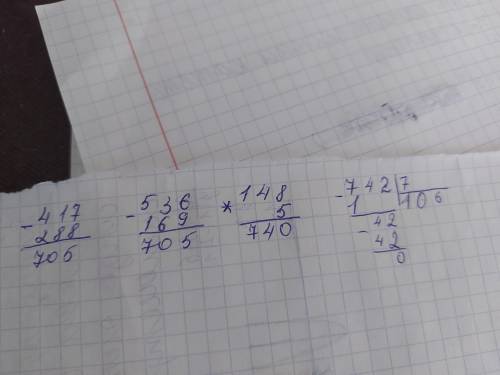 - 417
288
705
- 536
169
705
* 148
5
740
- 742 7
1 106
- 42
42
0